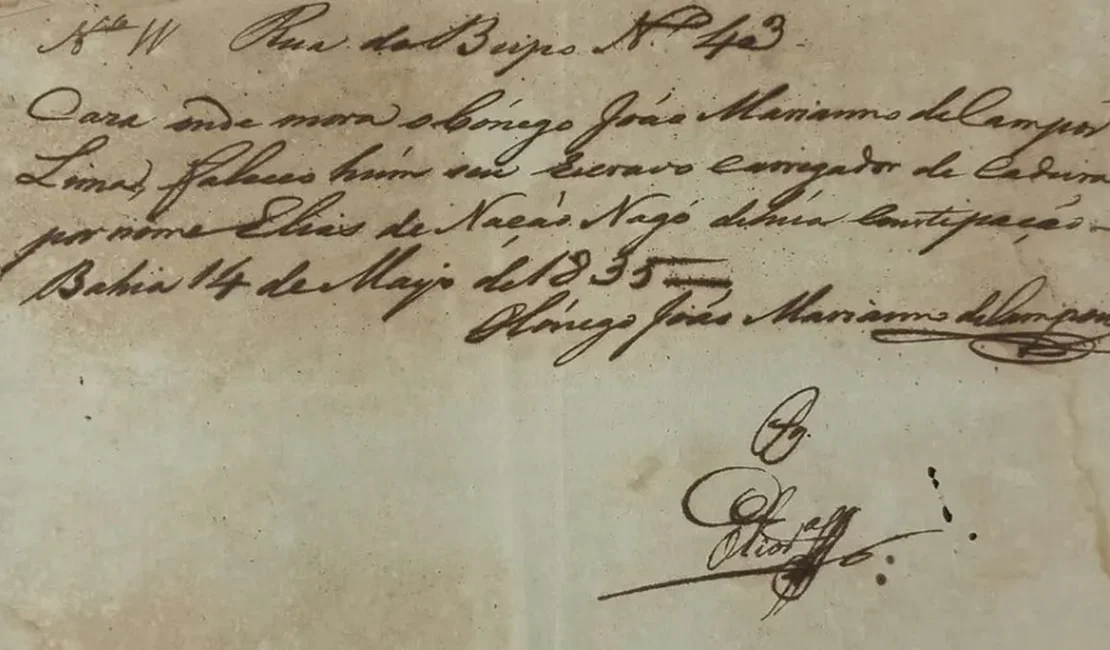 Rua do Bispo N.º 43
Caza onde mora o Cónego João Marianno de Campos
Lima, faleceo húm seu Escravo carregador de Cadeira
por nóme Elias de Nação Nagó de húa Constipação
Bahia 14 de Mayo de 1835
O Cónego João Marianno de Campos